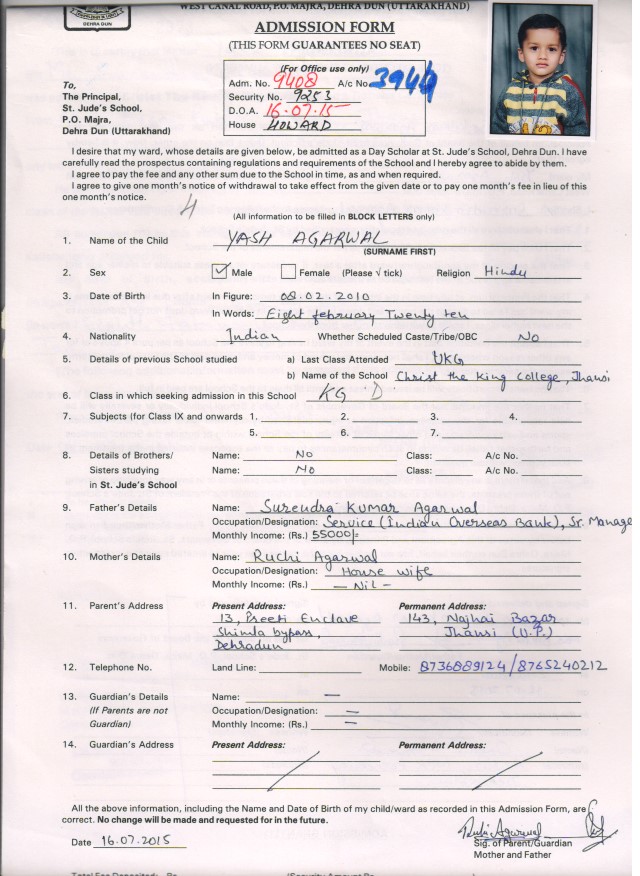 DEHRA DUN
WEST CANAL ROAD, P.O. MAJRA, DEHRA DUN (UTTARAKHAND)
ADMISSION FORM
(THIS FORM GUARANTEES NO SEAT)
(For Office use only)
Adm. No. 9408 A/c No. 3944
Security No. 9253
D.O.A. 16-07-15
House HOWARD
To,
The Principal,
St. Jude's School,
P.O. Majra,
Dehra Dun (Uttarakhand)
I desire that my ward, whose details are given below, be admitted as a Day Scholar at St. Jude's School, Dehra Dun. I have
carefully read the prospectus containing regulations and requirements of the School and I hereby agree to abide by them.
I agree to pay the fee and any other sum due to the School in time, as and when required.
I agree to give one month's notice of withdrawal to take effect from the given date or to pay one month's fee in lieu of this
one month's notice.
(All information to be filled in BLOCK LETTERS only)
1. Name of the Child YASH AGARWAL
(SURNAME FIRST)
2. Sex ✓ Male Female (Please √ tick) Religion Hindu
3. Date of Birth In Figure: 08.02.2010
In Words: Eight february Twenty ten
4. Nationality Indian Whether Scheduled Caste/Tribe/OBC No
5. Details of previous School studied a) Last Class Attended UKG
b) Name of the School Christ the King College, Jhansi
6. Class in which seeking admission in this School KG D
7. Subjects (for Class IX and onwards 1. 2. 3. 4.
5. 6. 7.
8. Details of Brothers/ Name: No Class: A/c No.
Sisters studying Name: No Class: A/c No.
in St. Jude's School
9. Father's Details Name: Surendra Kumar Agarwal
Occupation/Designation: Service (Indian Overseas Bank), Sr. Manage
Monthly Income: (Rs.) 55000/-
10. Mother's Details Name: Ruchi Agarwal
Occupation/Designation: House wife
Monthly Income: (Rs.) — Nil —
11. Parent's Address Present Address: Permanent Address:
13, Preeti Enclave 143, Najhai Bazar
Shimla bypass, Jhansi (U.P.)
Dehradun
12. Telephone No. Land Line: Mobile: 8736889124/8765240212
13. Guardian's Details Name: —
(If Parents are not Occupation/Designation: —
Guardian) Monthly Income: (Rs.) —
14. Guardian's Address Present Address: Permanent Address:
All the above information, including the Name and Date of Birth of my child/ward as recorded in this Admission Form, are
correct. No change will be made and requested for in the future.
Date 16.07.2015 Ruchi Agarwal
Sig. of Parent/Guardian
Mother and Father